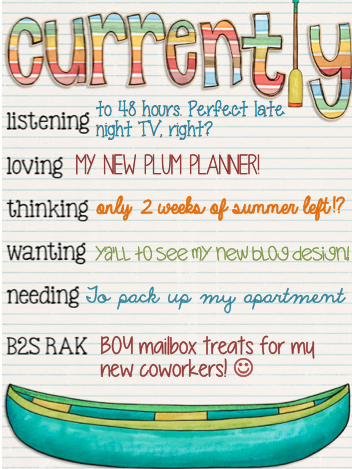 currently
listening to 48 hours. Perfect late
night TV, right?
loving MY NEW PLUM PLANNER!
thinking only 2 weeks of summer left!?
wanting YA'LL TO SEE MY NEW BLOG DESIGN!
needing To pack up my apartment
B2S RAK BOY mailbox treats for my
new coworkers! ☺